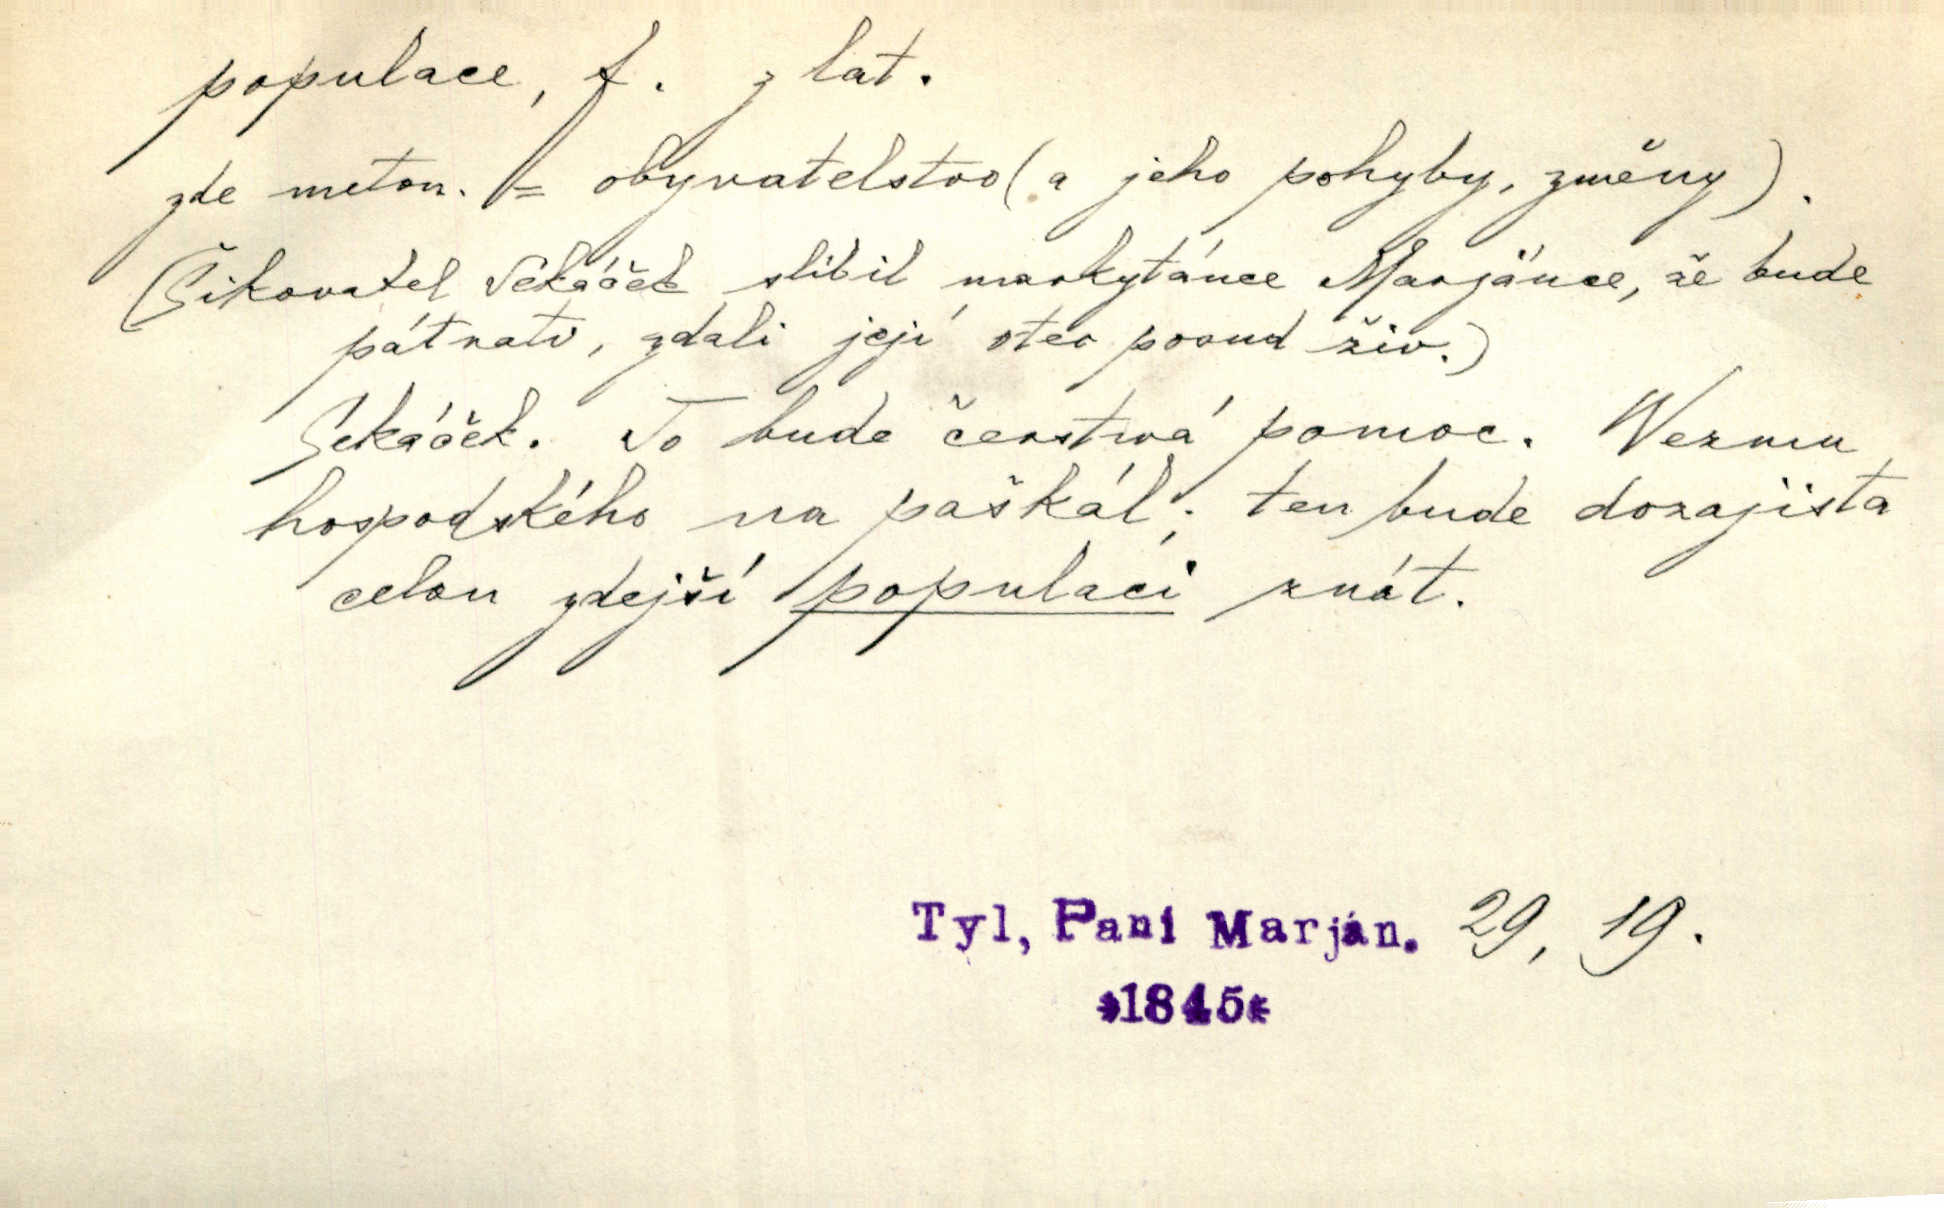 populace, f. z lat.
zde meton. = obyvatelstvo (a jeho pohyby, změny).
(Šikovatel Sekáček slíbil markytánce Marjánce, že bude
pátrati, zdali její otec posud živ.)
Sekáček. To bude čerstwá pomoc. Wezmu
hospodského na paškál; ten bude dozajista
celou zdejší populaci znát.
Tyl, Paní Marján. 29, 19.
*1845*